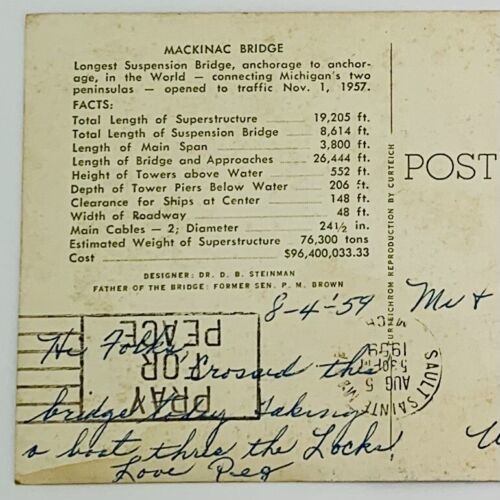 MACKINAC BRIDGE
Longest Suspension Bridge, anchorage to anchor-
age, in the World — connecting Michigan's two
peninsulas — opened to traffic Nov. 1, 1957.
FACTS:
Total Length of Superstructure 19,205 ft.
Total Length of Suspension Bridge 8,614 ft.
Length of Main Span 3,800 ft.
Length of Bridge and Approaches 26,444 ft.
Height of Towers above Water 552 ft.
Depth of Tower Piers Below Water 206 ft.
Clearance for Ships at Center 148 ft.
Width of Roadway 48 ft.
Main Cables — 2; Diameter 24½ in.
Estimated Weight of Superstructure 76,300 tons
Cost $96,400,033.33
DESIGNER: DR. D. B. STEINMAN
FATHER OF THE BRIDGE: FORMER SEN. P. M. BROWN
CURTEICHROM REPRODUCTION BY CURTEICH
POST
8-4-'59
Mr &
PRAY
FOR
PEACE
SAULT SAINTE
MICH
AUG 5
1959
Hi Folks, Crossed this
bridge today Taking
a boat thru the Locks
Love Peg